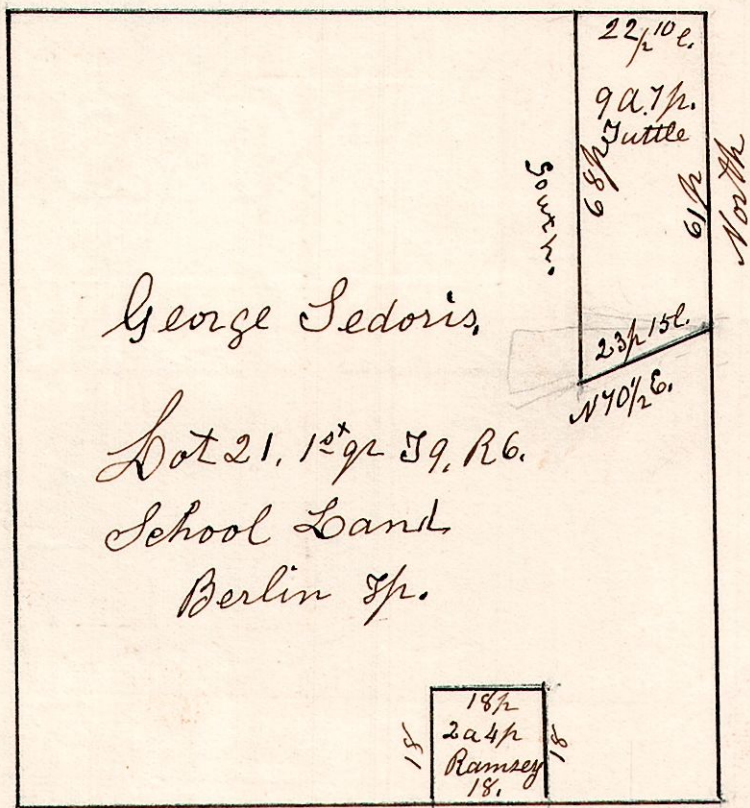 22p 10l.
9a. 7p.
Tuttle
68p
61p
South.
North
23p 15l.
N 70 1/2 E.
George Sedoris,
Lot 21, 1st qr T9, R6.
School Land
Berlin Tp.
18p
2a 4p
Ramsey
18.
18
18